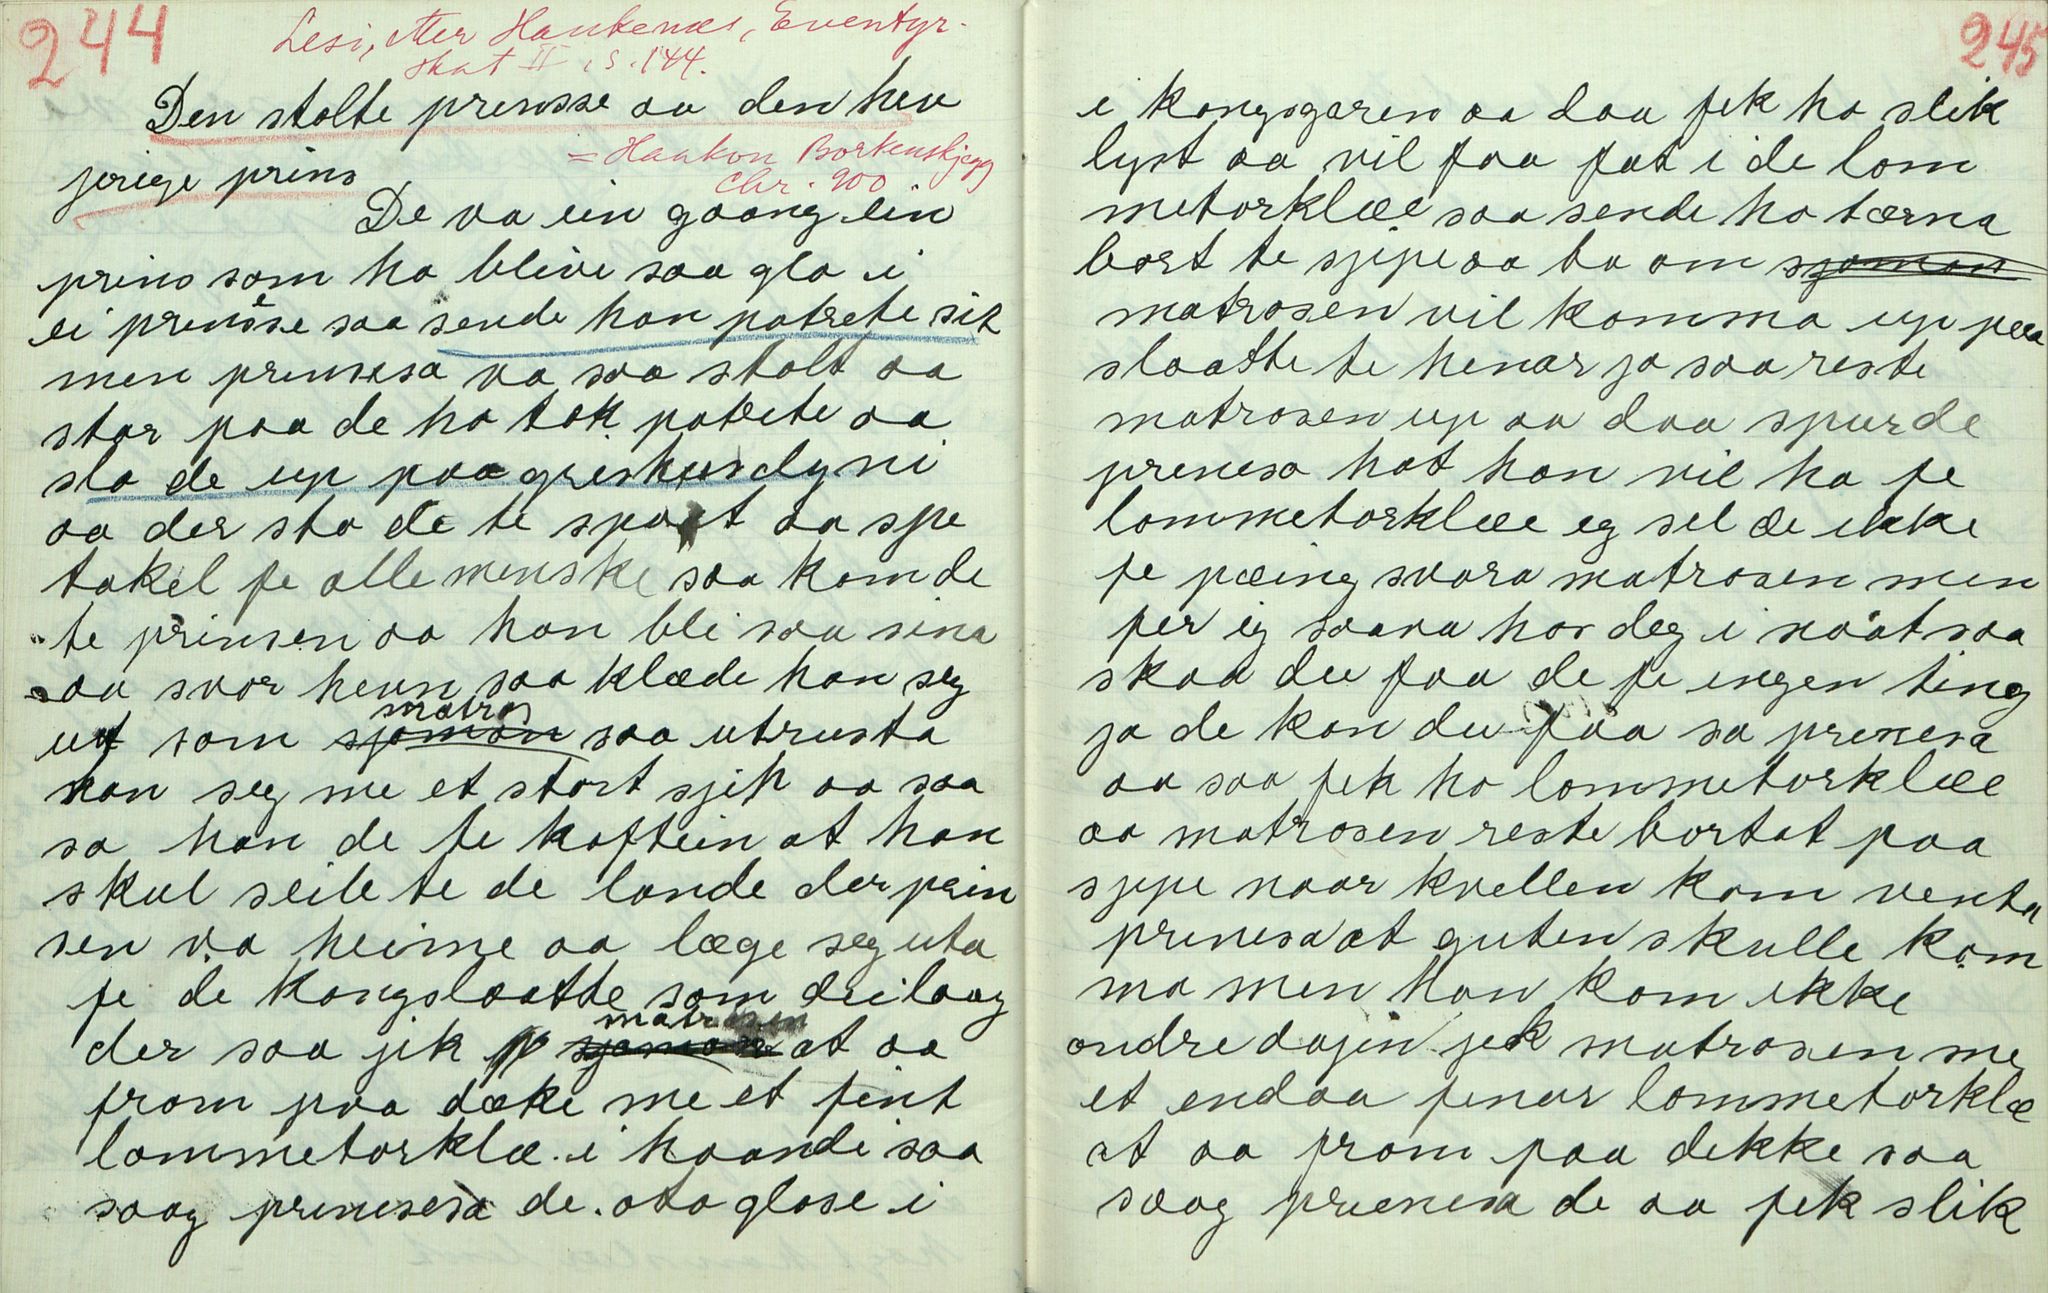 244
Lesi, etter Haukenæs, Eventyr-
skat II, s. 144.
Den stolte prinsse aa den hev
jerige prins
= Haakon Borkenskjegg
Chr. 900
De va ein goang ein
prins som ha blive saa gla i
ei prinsse saa sende han patrete sit
men prinsesa va saa stolt aa
stor paa de ho tok patrete aa
slo de up paa grishusdyni
aa der sto de te spaat aa spe
takel fe alle menske saa kom de
te prinsen aa han bli saa sina
aa svor hevn saa klæde han seg
ut som sjoman matros saa utrusta
han seg me et stort sjip aa saa
sa han de te kaftein at han
skul seile te de lande der prin
sen va heime aa læge seg uta
fe de kongslaatte som dei laag
der saa jik sjoman matrosen at aa
from paa dæke me et fint
lommetorklæ i haandi saa
saag prinsesa de ota glase i
245
i kongsgaren aa daa fek ho slik
lyst aa vil faa fat i de lom
metorklæe saa sende ho tærna
bort te sjipe aa ba om sjoman
matrosen vil komma up paa
slaatte te henar ja saa reste
matrosen up aa daa spurde
prinesa hot han vil ha fe
lommetorklæe eg sel de ikke
fe pæing svara matrosen men
fer eg saava hos deg i naat saa
skaa du faa de fe ingen ting
ja de kan du faa sa prinesa
aa saa fek ho lommetorklæe
aa matrosen reste bortat paa
sjipe naar kvellen kom venta
prinesa at guten skulle kom
ma men han kom ikke
andre dajin jek matrosen me
et endaa finar lommetorklæ
at aa from paa dekke saa
saag prinesa de aa fek slik